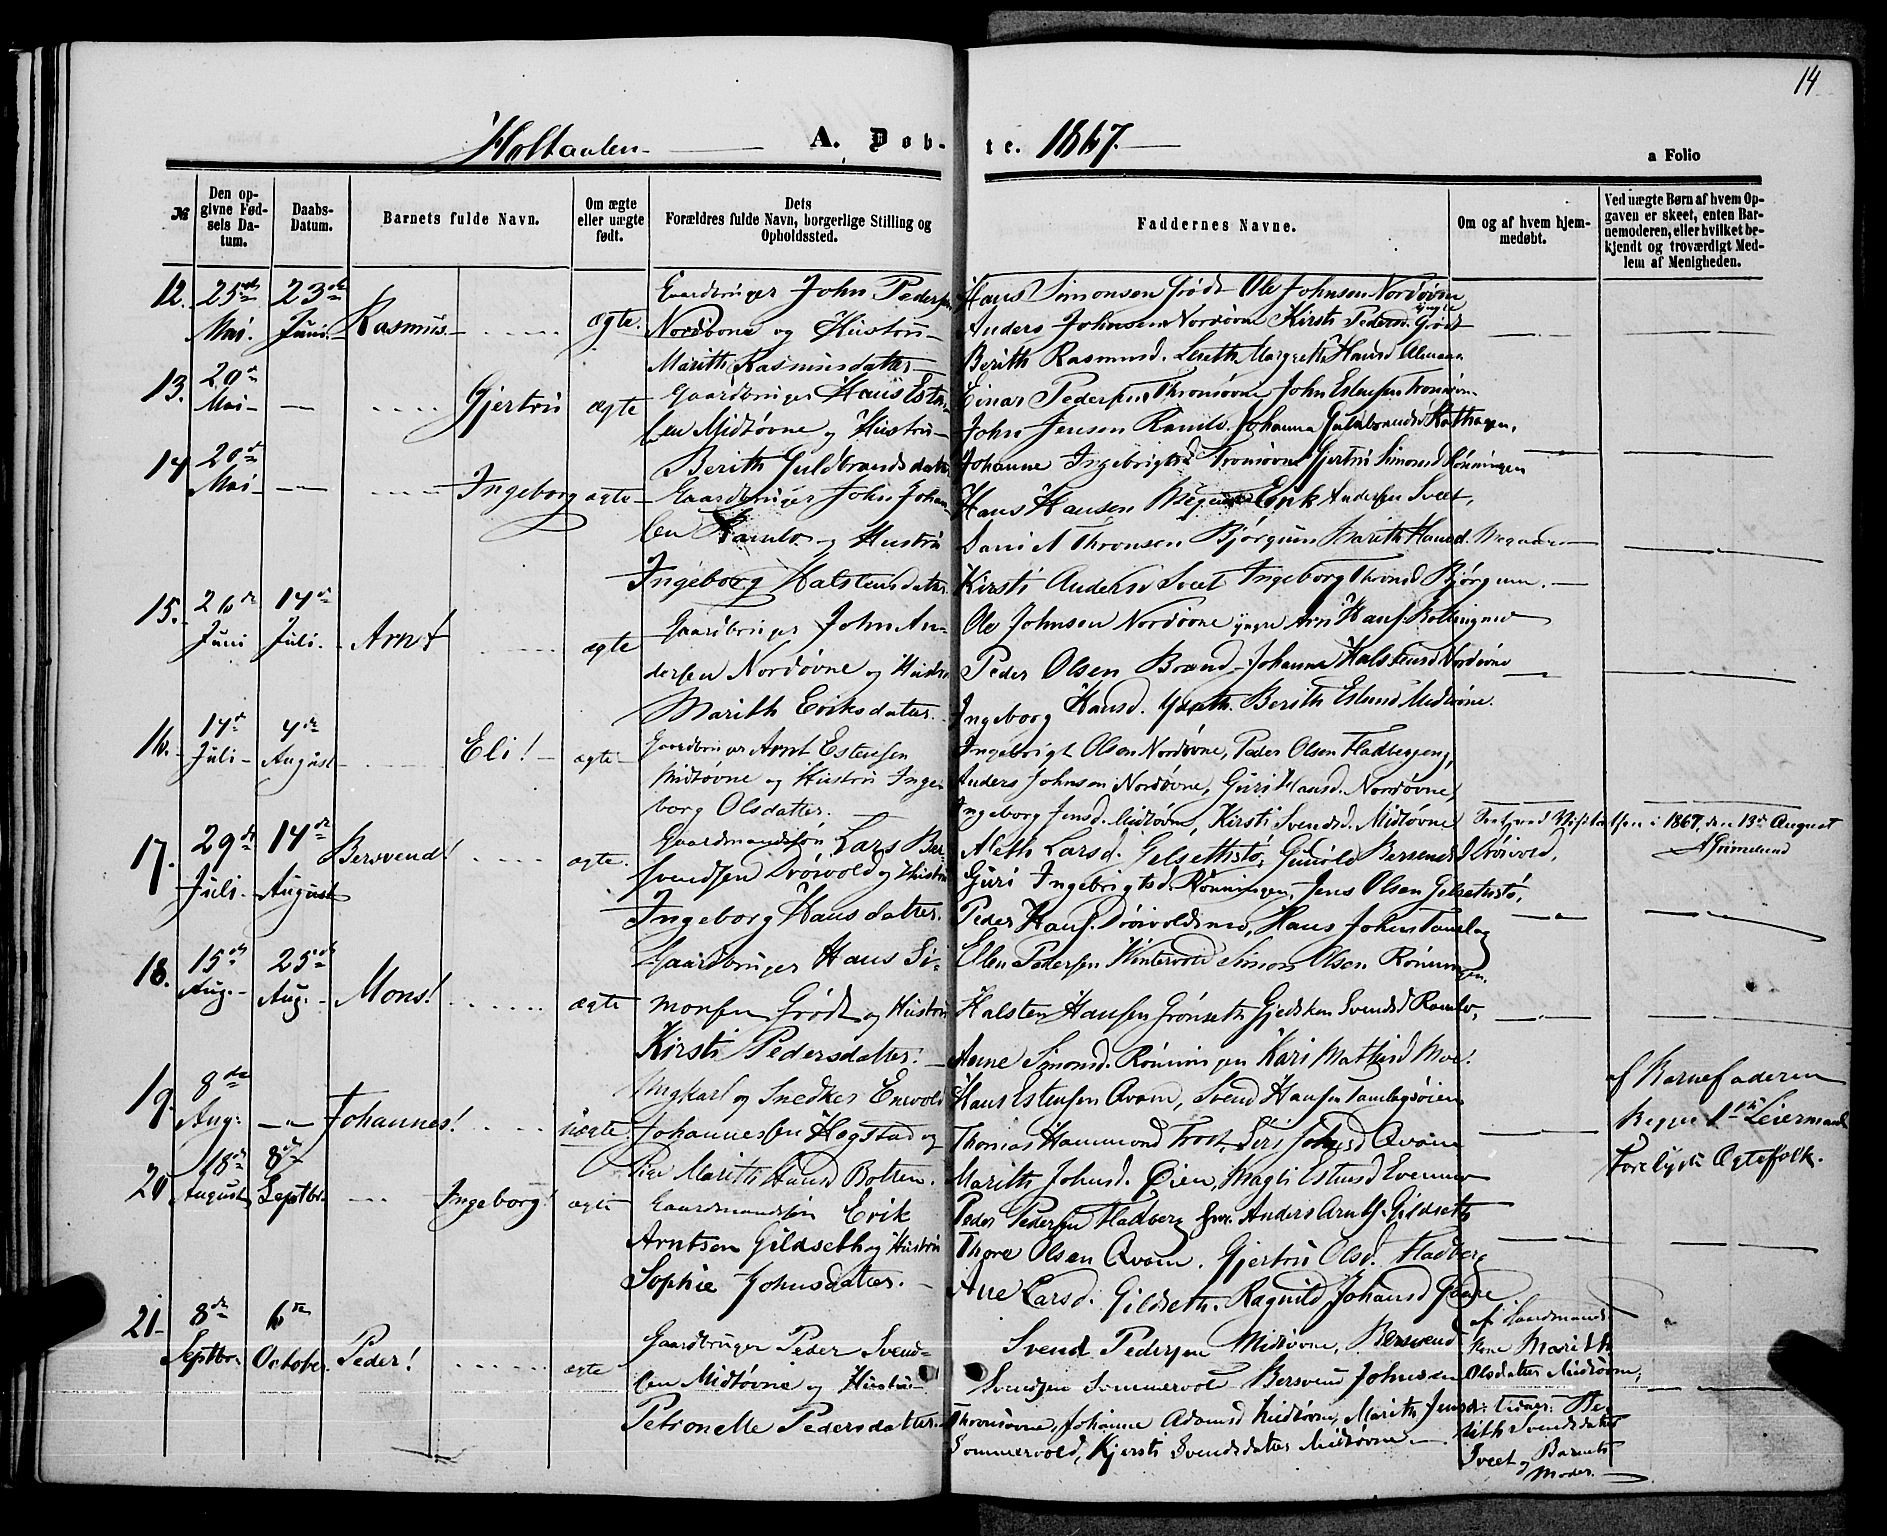 14
Holtaalen A. Døbte. 1867.
a Folio
№ | Den opgivne Fødsels Datum. | Daabs-Datum. | Barnets fulde Navn. | Om ægte eller uægte født. | Dets Forældres fulde Navn, borgerlige Stilling og Opholdssted. | Faddernes Navne. | Om og af hvem hjemmedøbt. | Ved uægte Børn af hvem Opgaven er skeet, enten Barnemoderen, eller hvilket bekjendt og troværdigt Medlem af Menigheden.
12. 25de Mai. 23de Juni. Rasmus ægte.
Gaardbruger John Pedersen
Nordøvne og Hustru
Marith Rasmusdatter
Hans Simonsen Grødt Ole Johnsen Nordøvne
Anders Johnsen Nordøvne Kirsti Pedersd. Grødt
Berith Rasmusd. Margreth Hansd
13. 20de Mai Gjertru ægte
Gaardbruger Hans Esten-
sen Midtøvne og Hustru
Berith Guldbrandsdatter
Einar Pedersen Thronsøvne John Estensen Tronsøvne
John Jensen Ramlo. Johanna Guldbrandsd
Johanne Ingebrigtsd Tronsøvne Gjertru Simonsd Rønningen
14 20de Mai Ingeborg ægte
Gaardbruger John Johan-
sen Ramlo og Hustru
Ingeborg Halstensdatter.
Hans Hansen Erik Andersen Svet,
Thronsen Bjørgum Marith Hansd.
Kirsti Andersd Svet Ingeborg Thronsd Bjørgum.
15. 26de Juni 14de Juli. Arnt ægte
Gaardbruger John An-
dersen Nordøvne og Hustru
Marith Eriksdatter.
Ole Johnsen Nordøvne yngre
Peder Olsen Brand Johanna Halstensd Nordøvne
Ingeborg Hansd. Berith Estensd Midtøvne.
16. 14de Juli 4de August Eli! ægte
Gaardbruger Arnt Estensen
Midtøvne og Hustru Inge-
borg Olsdatter.
Ingebrigt Olsen Nordøvne, Peder Olsen Fladbergeng,
Anders Johnsen Nordøvne, Guri Hansd. Nordøvne,
Ingeborg Jensd. Midtøvne, Kirsti Svendsd. Midtøvne
i 1867, den 13de August
Grimelund
17. 29de Juli 14de August Bersvend! ægte.
Gaardmandssøn Lars Ber-
svendsen Drøivold og Hustru
Ingeborg Hansdatter.
Larsd. Bersvendsd Drøivold,
Guri Ingebrigtsd. Rønningen, Jens Olsen
Peder Hans. Hans Johns Tamlag
18. 15de Aug. 25de Aug. Mons! ægte
Gaardbruger Hans Si-
monsen Grødt og Hustru
Kirsti Pedersdatter!
Ellen Pedersen Simon Olsen Rønningen.
Halsten Hansen Grønseth Gjedsken Svendsd Ramlo,
Anne Simonsd. Rønningen Kari Mathisd Moe!
19. 8de Aug: Johannes! uægte.
Ungkarl og Snedker Enevold
Johannessen Hogstad og
Pige Marith Hansd Bolten.
Hans Estensen Qvam, Svend Hansen Tamlagsøien
Thomas Hammond Trost, Johnsd Qvam
Marith Johnsd. Øien, Magli Estensd Evenmo
af Barnefaderen
Begges 1ste Leiermaal
Ægtefolk.
20 18de August 8de Septbr. Ingeborg! ægte
Gaardmandssøn Erik
Arntsen Gildseth og Hustru
Sophie Johnsdatter.
Peder Pedersen Fladberg Anders Arnts. Gildseth
Thore Olsen Qvam. Gjertru Olsd. Fladberg
Ane Larsd. Gildseth. Ragnild Johansd
21 8de Septbr. 6te October Peder! ægte
Gaardbruger Peder Svend-
sen Midtøvne og Hustru
Petronelle Pedersdatter.
Svend Pedersen Midtøvne, Bersvend
Svendsen Sommervold Bersvend Johnsen
Thronsøvne, Johanne Adamsd Midtøvne, Marith Jensd.
Sommervold, Kjersti Svendsdatter Midtøvne.
af Gaardmands-
Kone Marith
Olsdatter Midtøvne,
Vidner: Be-
rith Svendsdatter
Svet og Barnets
Moder.